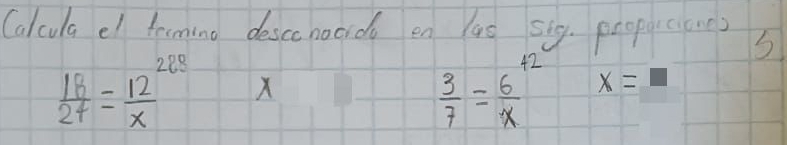 Calcula el termino desconocido en las sig. proporciones
18/24 = 12/x 288 x 3/7 = 6/x 42 x =